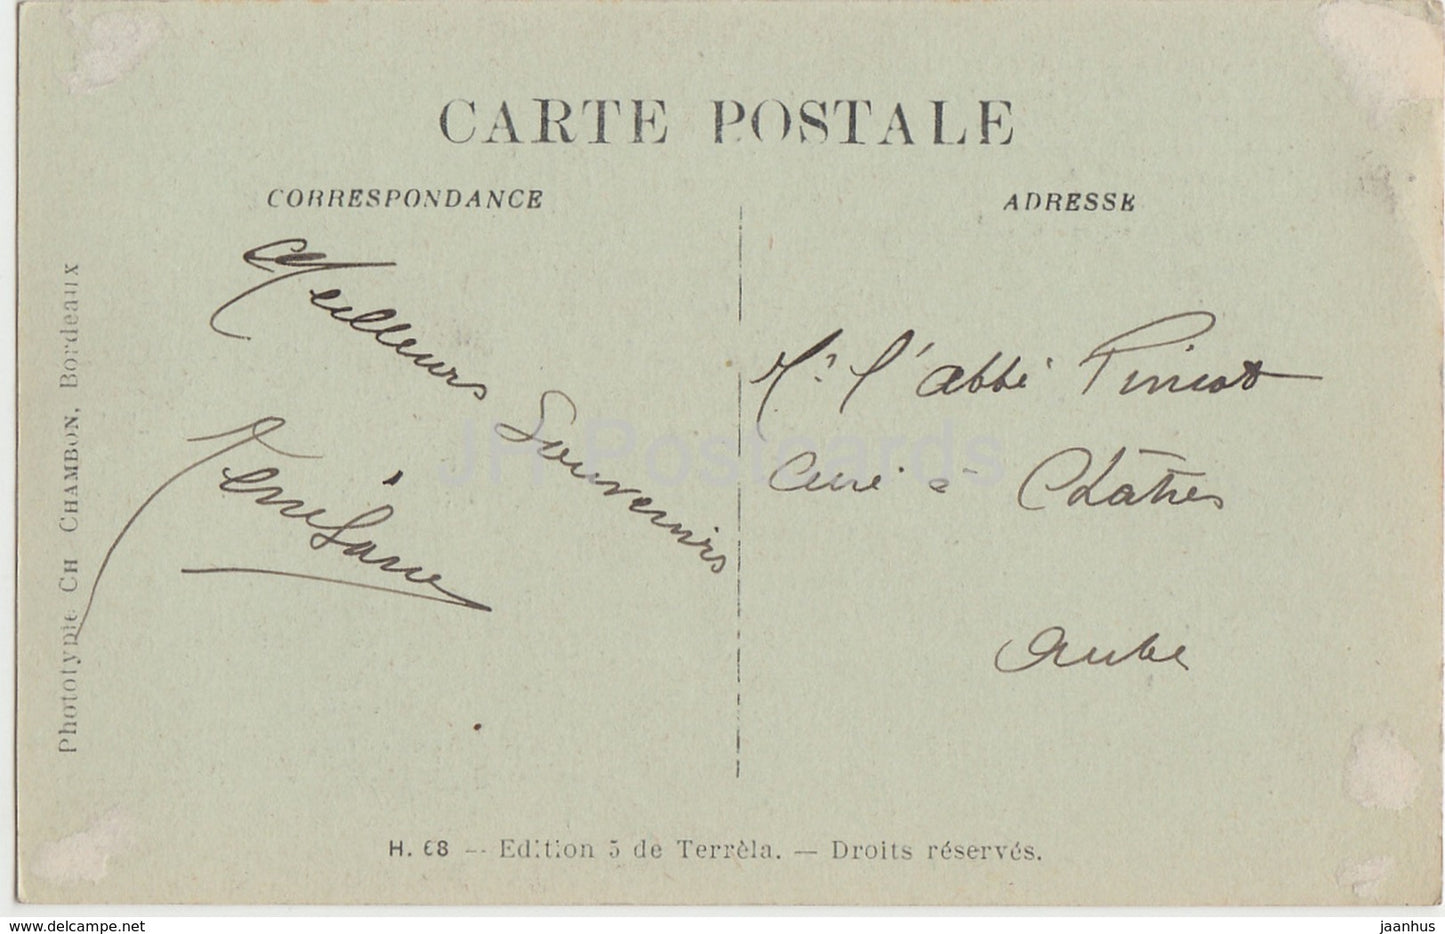 CARTE POSTALE
CORRESPONDANCE
ADRESSE
Meilleurs Souvenirs
Mr l'abbé
Curé à Châtres
Aube
Phototypie CH CHAMBON, Bordeaux
H. 68 -- Edition 5 de Terrèla. — Droits réservés.
JH Postcards
www.delcampe.net
jaanhus